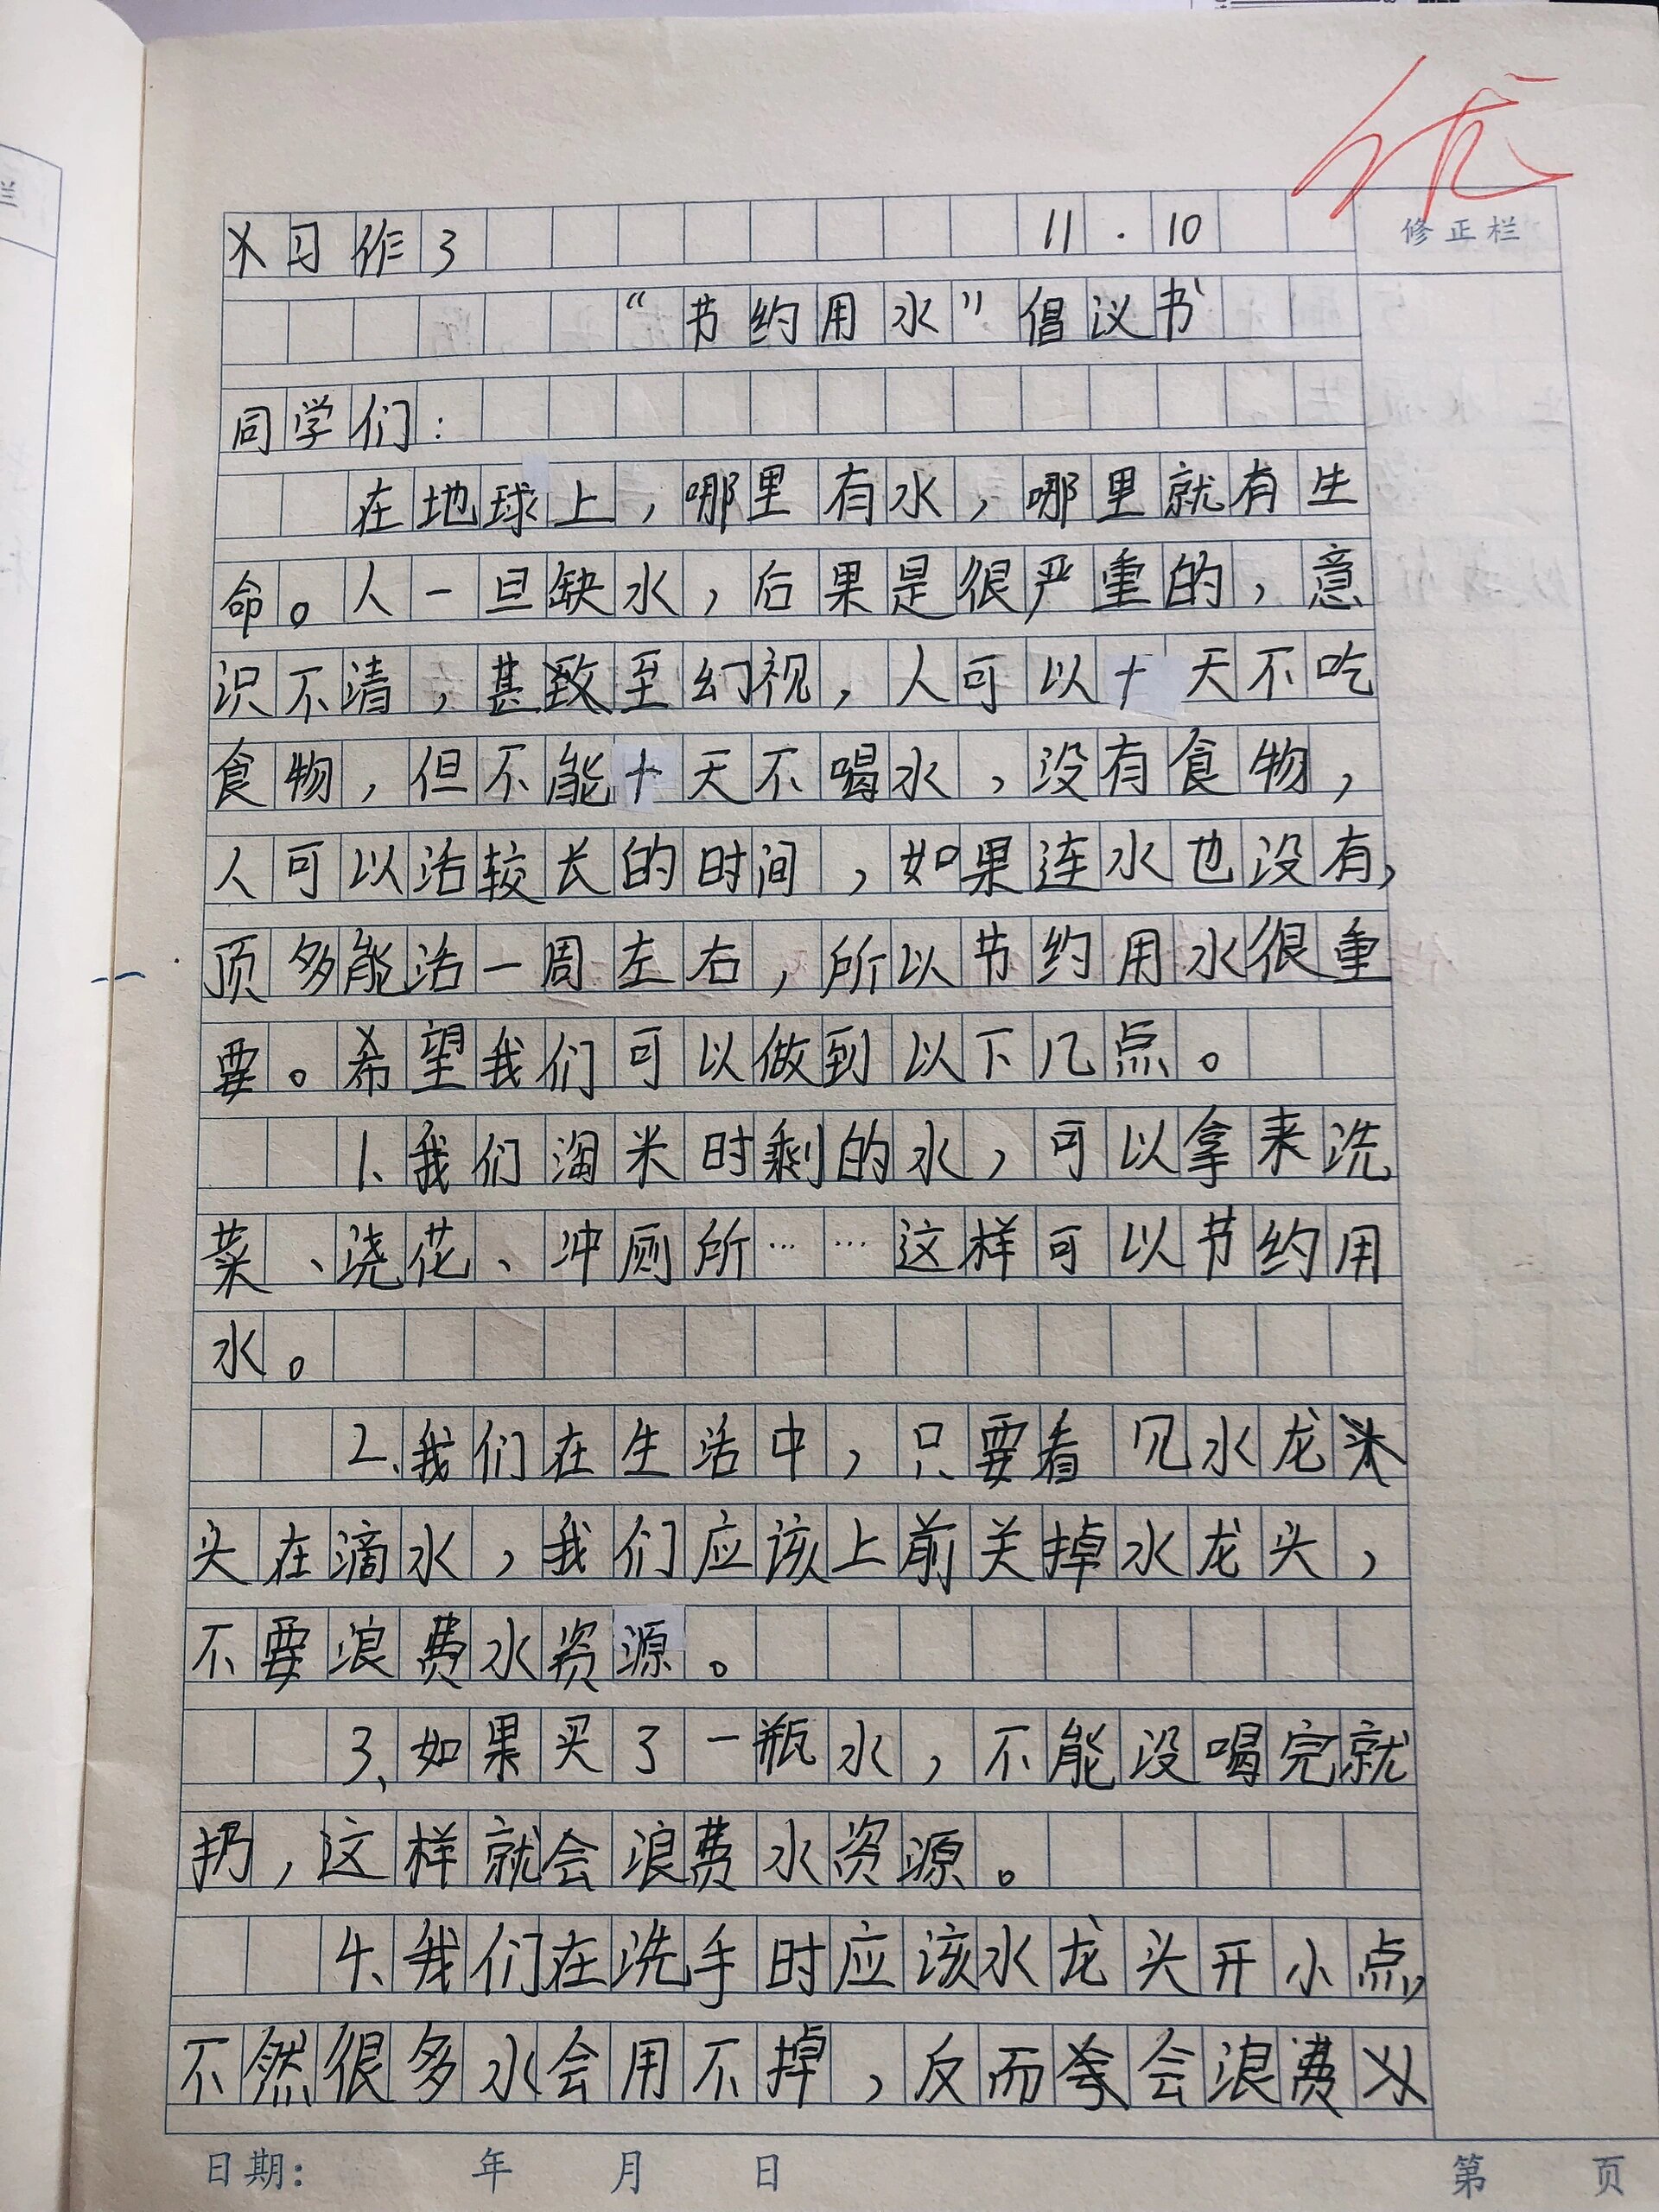 优
修正栏
习作3 11.10
“节约用水”倡议书
同学们:
在地球上，哪里有水，哪里就有生
命。人一旦缺水，后果是很严重的，意
识不清，甚至幻视，人可以十天不吃
食物，但不能十天不喝水，没有食物，
人可以活较长的时间，如果连水也没有，
顶多能活一周左右，所以节约用水很重
要。希望我们可以做到以下几点。
1、我们淘米时剩的水，可以拿来洗
菜、浇花、冲厕所……这样可以节约用
水。
2、我们在生活中，只要看见水龙
头在滴水，我们应该上前关掉水龙头，
不要浪费水资源。
3、如果买了一瓶水，不能没喝完就
扔，这样就会浪费水资源。
4、我们在洗手时应该水龙头开小点，
不然很多水会用不掉，反而会浪费
日期: 年 月 日
第 页